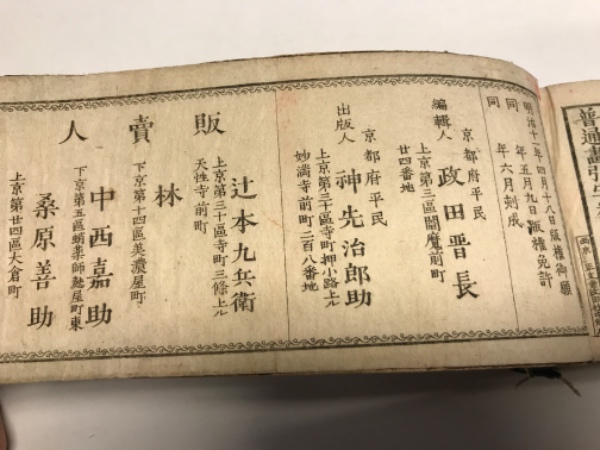 明治十一年四月十八日版權御願
同年五月九日版權免許
同年六月刻成
編輯人
京都府平民
政田晋長
上京第三區閻魔前町
廿四番地
出版人
京都府平民
神先治郎助
上京第三十區寺町押小路上ル
妙満寺前町二百八番地
販賣人
辻本九兵衛
上京第三十區寺町三條上ル
天性寺前町
林
下京第十四區美濃屋町
中西嘉助
下京第五區蛸薬師麩屋町東
桑原善助
上京第廿四區大倉町
普通畫引